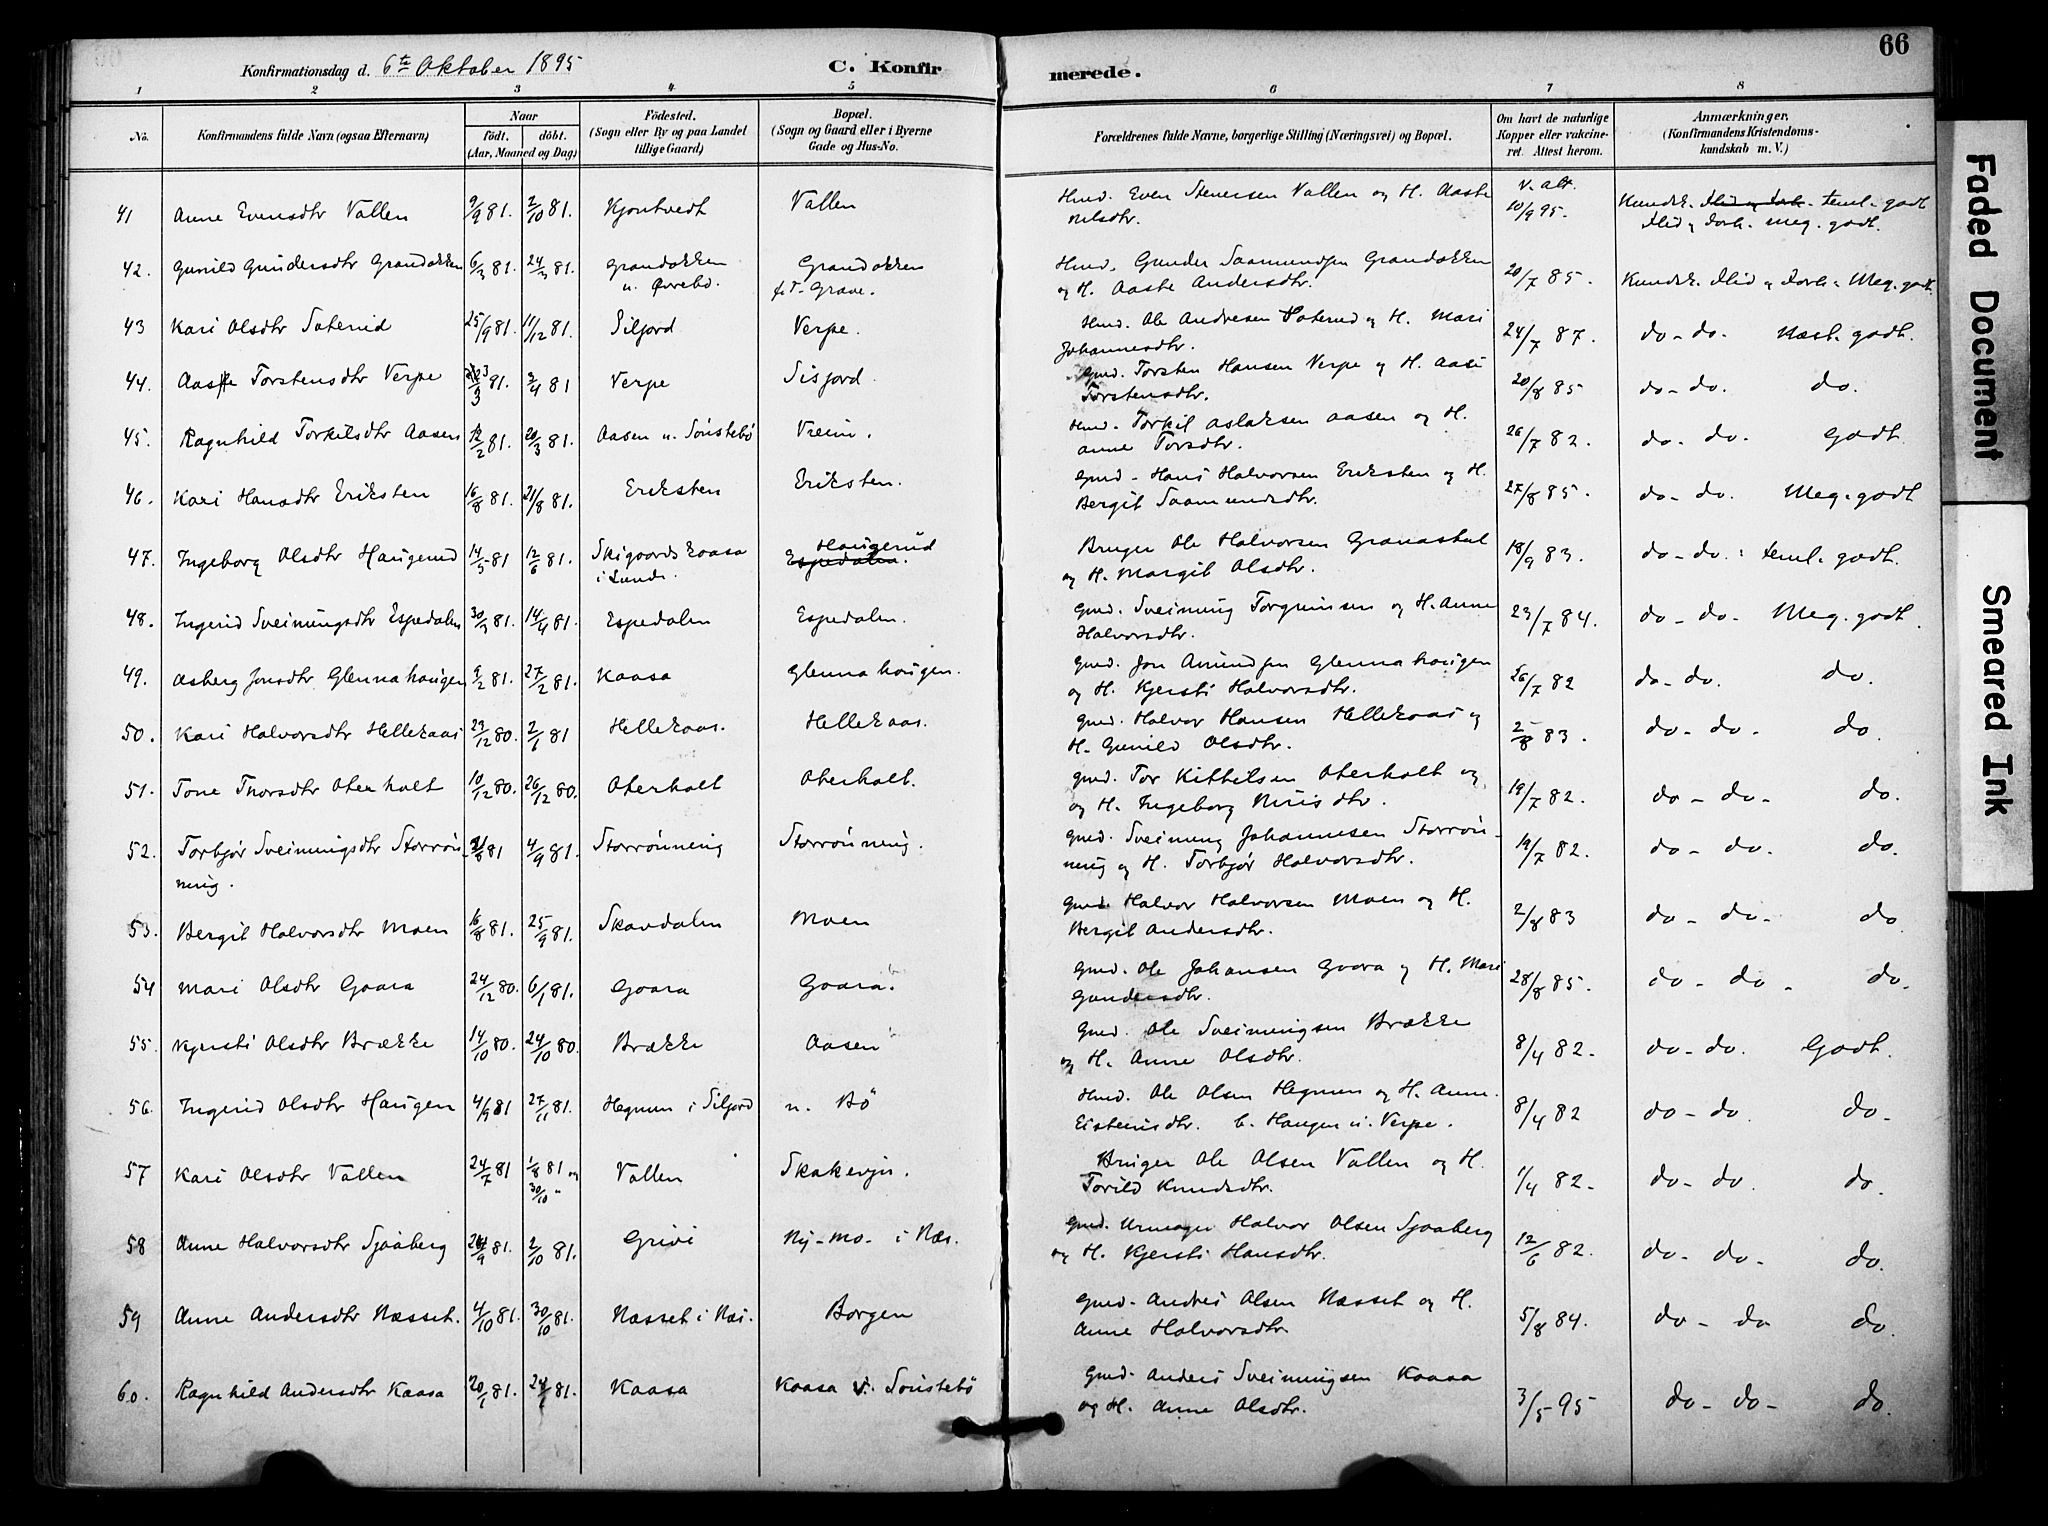 66
Konfirmationsdag d. 6te Oktober 1895
C. Konfirmerede.
1 2 3 4 5 6 7 8
No. Konfirmandens fulde Navn (ogsaa Efternavn) Naar født. døbt. (Aar, Maaned og Dag) Födested. (Sogn eller By og paa Landet tillige Gaard) Bopæl. (Sogn og Gaard eller i Byerne Gade og Hus-No. Forældrenes fulde Navne, borgerlige Stilling (Næringsvei) og Bopæl. Om havt de naturlige Kopper eller vakcineret. Attest herom. Anmærkninger. (Konfirmandens Kristendomskundskab m. V.)
41 Anne Evensdtr Vallen 9/9 81. 2/10 81. Kjøntvedt Vallen Hmd. Even Stenersen Vallen og H. Aaste Nilsdtr. v. alt. 10/9 95. Kundsk. Flid og Forh. teml. godt Flid og Forh. meg. godt.
42. Gunild Gundersdtr Grandokken 6/3 81. 24/3 81. Grandokken u. Øvrebø. Grandokken Grave. Hmd. Gunder Saamundsen Grandokken og H. Aaste Andersdtr. 20/7 85. Kundsk. Flid og Forh. Meg. godt.
43 Kari Olsdtr Saterud 25/9 81. 11/12 81. Siljord Verpe. Hmd. Ole Andresen Saterud og H. Mari Johannesdtr. 24/7 87. do - do. Næst. godt.
44. Aaste Torstensdtr Verpe 23/3 81. 3/4 81 Verpe Sisjord. Gmd. Torsten Hansen Verpe og H. Aase Torstensdtr. 20/8 85 do - do. do.
45. Ragnhild Torkilsdtr Aasen 12/2 81. 20/3 81. Aasen u. Sønstebø Vreim. Hmd. Torkil Aslaksen Aasen og H. Anne Torsdtr. 26/7 82. do - do. Godt
46. Kari Hansdtr Eriksten 16/8 81. 21/8 81. Eriksten Eriksten. Gmd. Hans Halvorsen Eriksten og H. Bergit Saamundsdtr. 27/8 85. do - do. Meg. godt
47. Ingeborg Olsdtr Haugerud 14/5 81 12/6 81. Skigaardskaasa i Lunde. Haugerud Espedalen. Bruger Ole Halvorsen Granastul og H. Margit Olsdtr. 18/9 83. do - do. teml. godt.
48. Ingerid Sveinungsdtr Espedalen 30/3 81. 14/4 81. Espedalen Espedalen. Gmd. Sveinung Torgrimsen og H. Anne Halvorsdtr. 23/7 84. do - do. Meg. godt.
49. Asberg Jonsdtr Glennahaugen 9/2 81. 27/2 81. Kaasa Glennahaugen. Gmd. Jon Amundsen Glennahaugen og H. Kjersti Halvorsdtr. 26/7 82 do - do. do.
50. Kari Halvorsdtr Hellekaas 23/12 80. 2/1 81 Hellekaas. Hellekaas. Gmd. Halvor Hansen Hellekaas og H. Gunild Olsdtr. 2/8 83. do - do. do.
51. Tone Thorsdtr Oterholt 10/12 80. 26/12 80. Oterholt Oterholt. Gmd. Tor Kittilsen Oterholt og og H. Ingeborg Nirisdtr. 19/7 82. do - do - do.
52. Torbjør Sveinungsdtr Storrønning. 21/8 81 4/9 81. Storrønning Storrønning. Gmd. Sveinung Johannesen Storrønning og H. Torbjør Halvorsdtr. 19/7 82. do - do. do.
53. Bergit Halvorsdtr Moen 16/8 81. 25/9 81. Skavdalen Moen Gmd. Halvor Halvorsen Moen og H. Bergit Andersdtr. 2/8 83 do - do - do
54 Mari Olsdtr Gaara 24/12 80. 6/1 81. Gaara Gaara. Gmd. Ole Johansen Gaara og H. Mari Gundersdtr. 28/8 85. do - do - do.
55. Kjersti Olsdtr Brække 14/10 80. 24/10 80. Brække Aasen Gmd. Ole Sveinungsen Brække og H. Anne Olsdtr. 8/4 82. do - do. Godt.
56. Ingerid Olsdtr Haugen 4/9 81 27/11 81. Hegnum i Siljord n. Bø Hmd. Ole Olsen Hegnum og H. Anne Eisteinsdtr. b. Haugen u. Verpe. 8/4 82 do - do. do.
57 Kari Olsdtr Vallen 24/7 81 1/8 81 og 30/10 " Vallen Skakevju. Bruger Ole Olsen Vallen og H. Torild Knudsdtr. 1/4 82. do - do. do.
58 Anne Halvorsdtr Sjaaberg 24/9 81. 2/10 81. Grivi Ny-mo. i Næs. Gmd. Urmager Halvor Olsen Sjaaberg og H. Kjersti Hansdtr. 12/6 82. do - do - do.
59 Anne Andersdtr Næsset. 4/10 81. 30/10 81. Næsset i Næs. Borgen Gmd. Andres Olsen Næsset og H. Anne Halvorsdtr 5/8 84. do - do do.
60. Ragnhild Andersdtr Kaasa 20/1 81. 24/1 81. Kaasa Kaasa v. Sønstebø Gmd. Anders Sveinungsen Kaasa og H. Anne Olsdtr. 3/5 95 do - do - do.
Faded Document
Smeared Ink